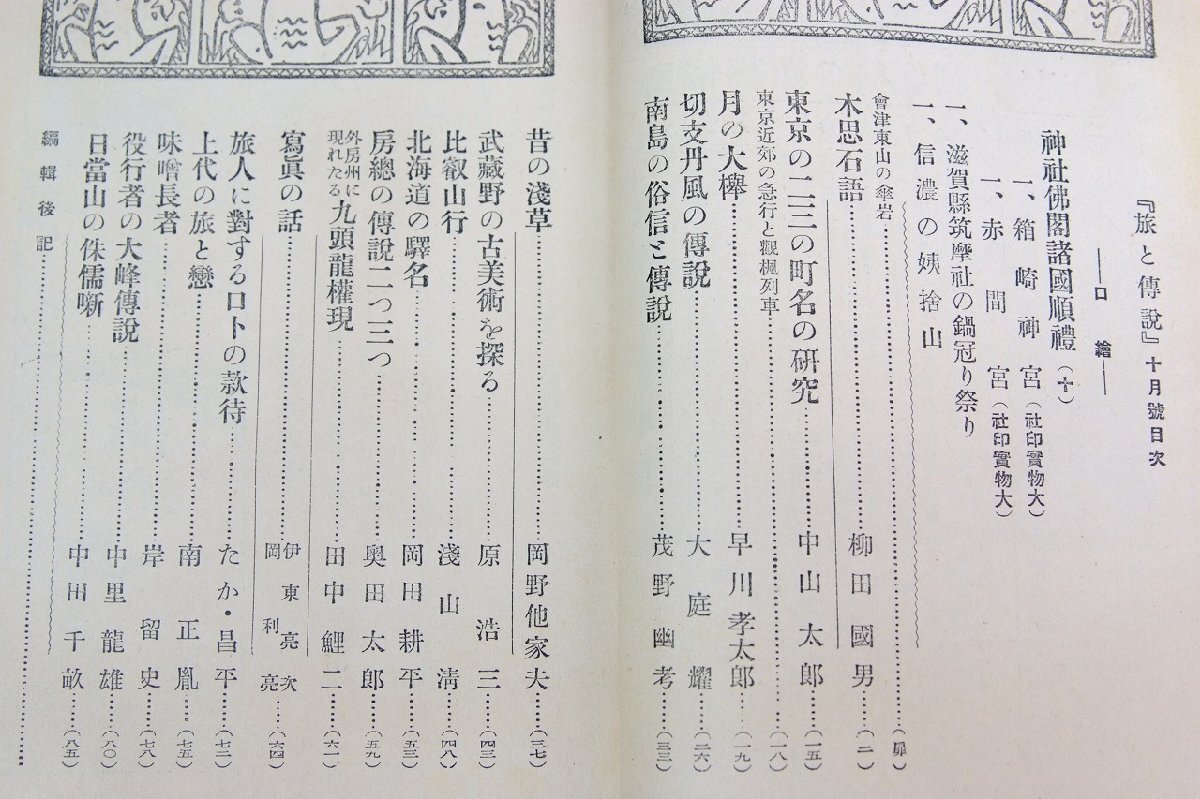 『旅と傳說』十月號目次
――口繪――
神社佛閣諸國順禮（十）
一、箱崎神宮（社印實物大）
一、赤間宮（社印實物大）
一、滋賀縣筑摩社の鍋冠り祭り
一、信濃の姨捨山
會津東山の傘岩……（扉）
木思石語……柳田國男……（二）
東京の二三の町名の研究……中山太郎……（一五）
東京近郊の急行と觀楓列車……（一八）
月の大欅……早川孝太郎……（一九）
切支丹風の傳說……大庭耀……（二六）
南島の俗信と傳說……茂野幽考……（三三）
昔の淺草……岡野他家夫……（三七）
武藏野の古美術を探る……原浩三……（四三）
比叡山行……淺山清……（四八）
北海道の驛名……岡田耕平……（五三）
房總の傳說二つ三つ……奧田太郎……（五九）
外房州に現れたる九頭龍權現……田中鯉二……（六一）
寫眞の話……伊東亮次 岡利亮……（六四）
旅人に對するロトの款待……たか・昌平……（七二）
上代の旅と戀……南正胤……（七五）
味噌長者……岸留史……（七八）
役行者の大峰傳說……中里龍雄……（八〇）
日當山の侏儒噺……中田千畝……（八五）
編輯後記……